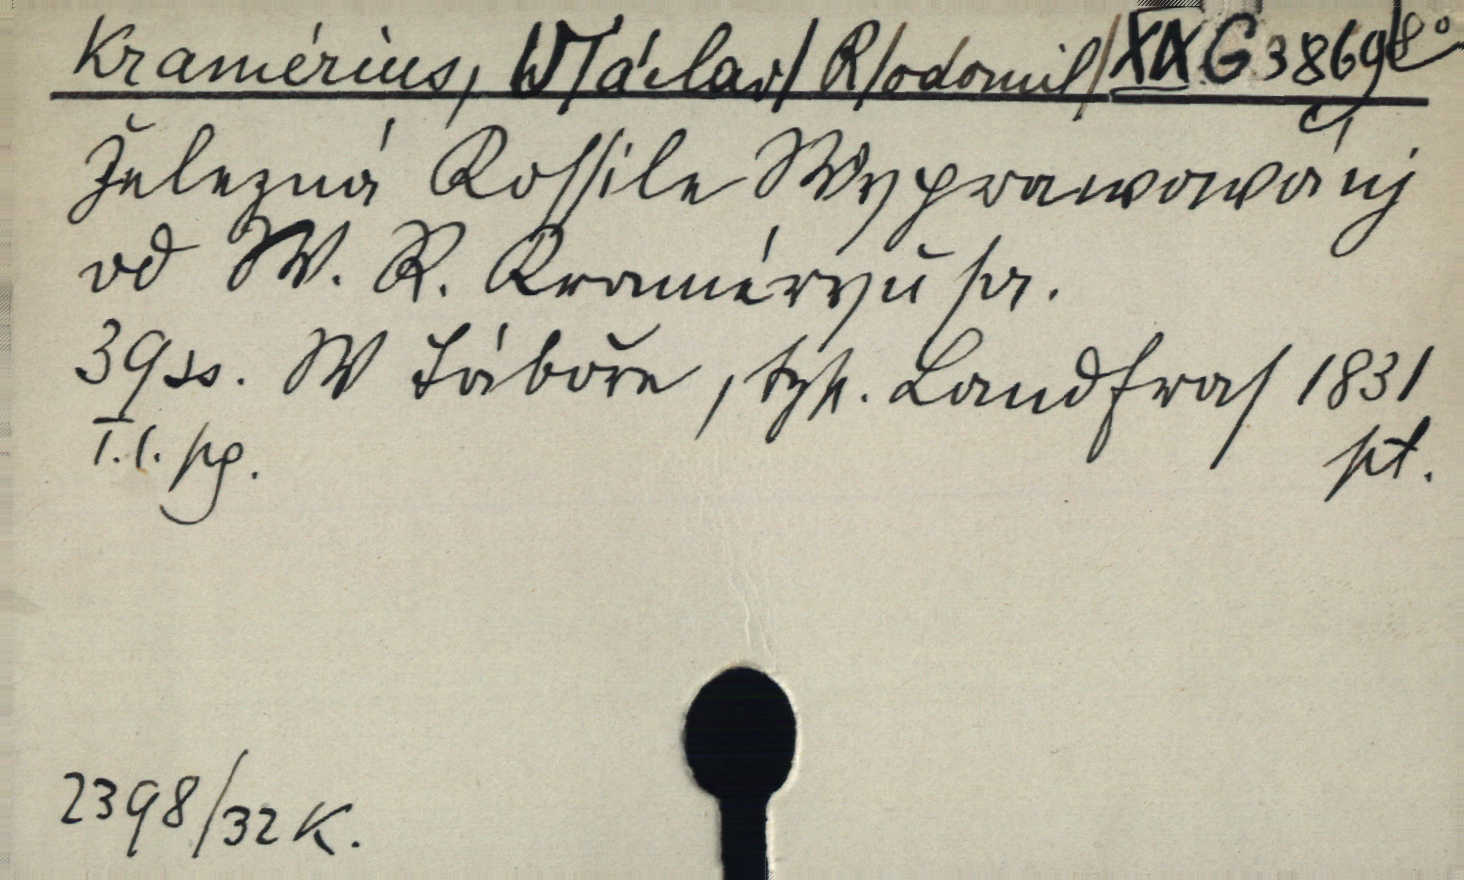 Kramérius, W/ácslav/ R/odomil/ XIX G 3869 8°
Železná Kossile Wyprawowánj
od W. R. Kraméryusa.
39 ss. W Táboře, tysk. Landfras 1831
I.1. pg. pt.
2398/32 K.